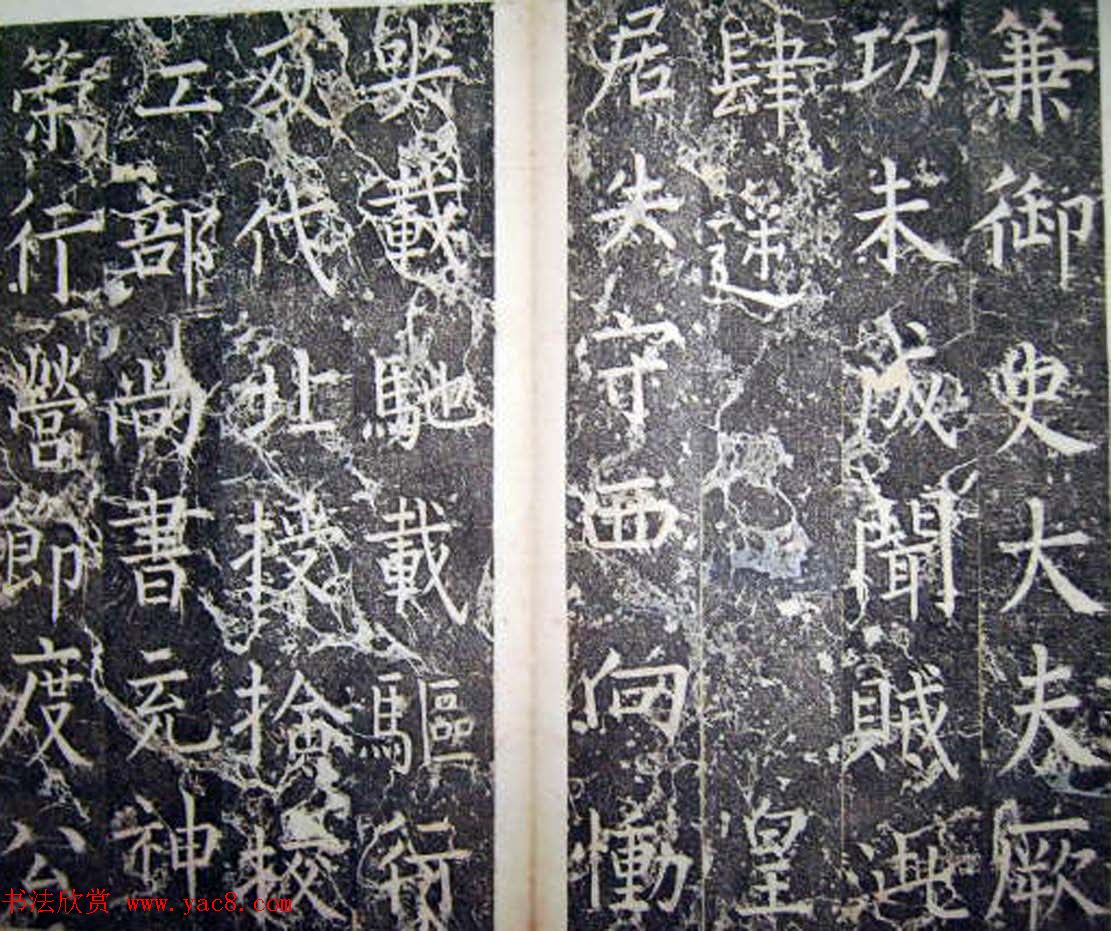 兼御史大夫厥
功未成聞賊泚
肆逆皇
居失守西向慟
哭載馳載驅行
及代北授檢校
工部尚書充神
策行營節度公
书法欣赏 www.yac8.com